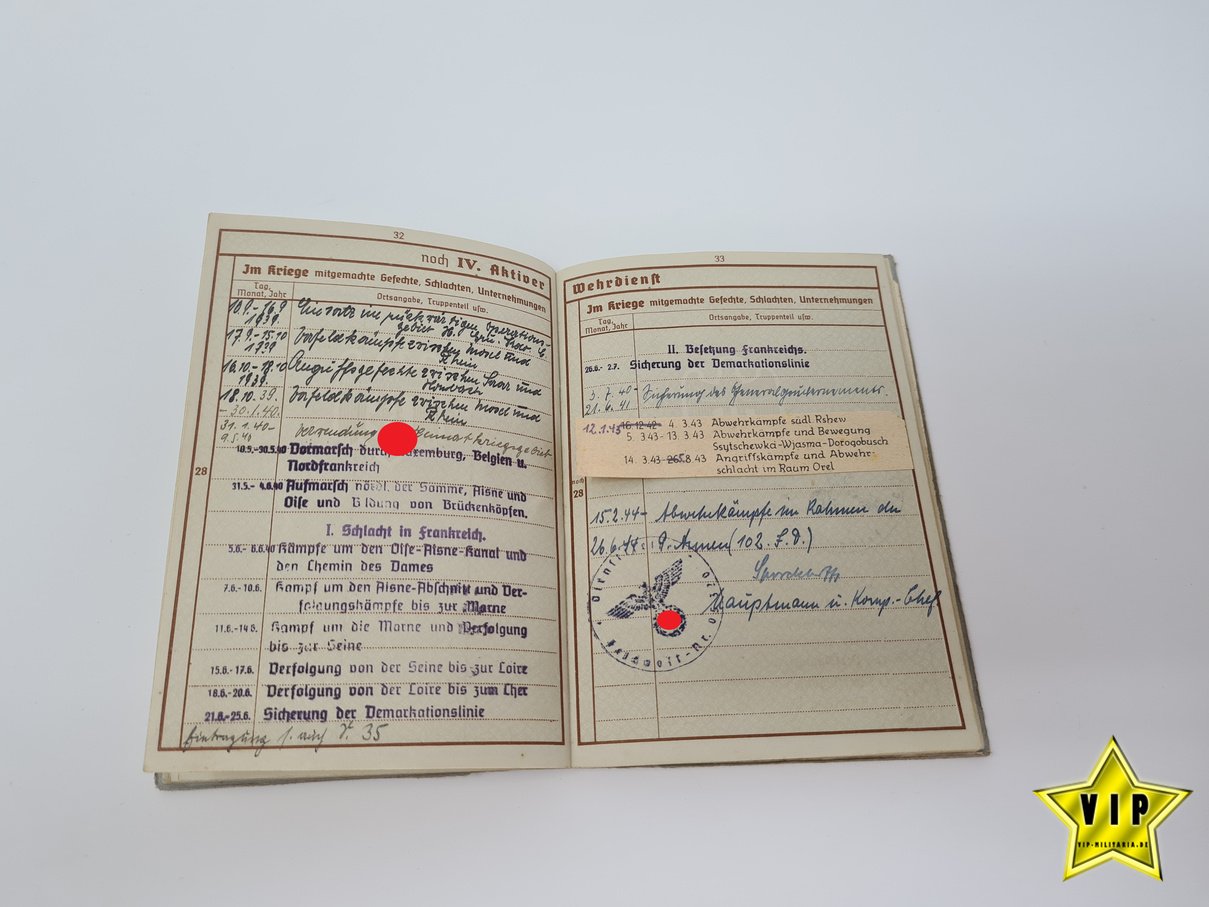 32
noch IV. Aktiver
Im Kriege mitgemachte Gefechte, Schlachten, Unternehmungen
Tag, Monat, Jahr
Ortsangabe, Truppenteil usw.
10.9.-16.9. 1939 Einsatz im rückwärtigen Operations-
gebiet
17.9.-15.10 1939 Vorfeldkämpfe zwischen Mosel und
Rhein
16.10.-17.10 1939. Angriffsgefechte zwischen Saar und
Hornbach
18.10.39. - 30.1.40. Vorfeldkämpfe zwischen Mosel und
Rhein
31.1.40- 9.5.40 Verwendung Heimatkriegsgebiet
10.5.-30.5.40 Vormarsch durch Luxemburg, Belgien u.
Nordfrankreich
31.5.- 4.6.40 Aufmarsch nördl. der Somme, Aisne und
Oise und Bildung von Brückenköpfen.
28
I. Schlacht in Frankreich.
5.6.- 6.6.40 Kämpfe um den Oise-Aisne-Kanal und
den Chemin des Dames
7.6.-10.6. Kampf um den Aisne-Abschnitt und Ver-
folgungskämpfe bis zur Marne
11.6.-14.6. Kampf um die Marne und Verfolgung
bis zur Seine
15.6.-17.6. Verfolgung von der Seine bis zur Loire
18.6.-20.6. Verfolgung von der Loire bis zum Cher
21.6.-25.6. Sicherung der Demarkationslinie
Eintragung s. auch S. 35
33
Wehrdienst
Im Kriege mitgemachte Gefechte, Schlachten, Unternehmungen
Tag, Monat, Jahr
Ortsangabe, Truppenteil usw.
II. Besetzung Frankreichs.
26.6.- 2.7. Sicherung der Demarkationslinie
3.7.40- Sicherung des Generalgouvernements.
21.6.41
12.1.43 16.12.42- 4. 3.43 Abwehrkämpfe südl. Rshew
5. 3.43- 13. 3.43 Abwehrkämpfe und Bewegung
Ssytschewka-Wjasma-Dorogobusch
14. 3.43 8.43 Angriffskämpfe und Abwehr-
schlacht im Raum Orel
noch
28
15.2.44- Abwehrkämpfe im Rahmen der
26.6.44 9. Armee (102. I.D.)
Hauptmann u. Komp.-Chef
VIP
VIP-MILITARIA.DE